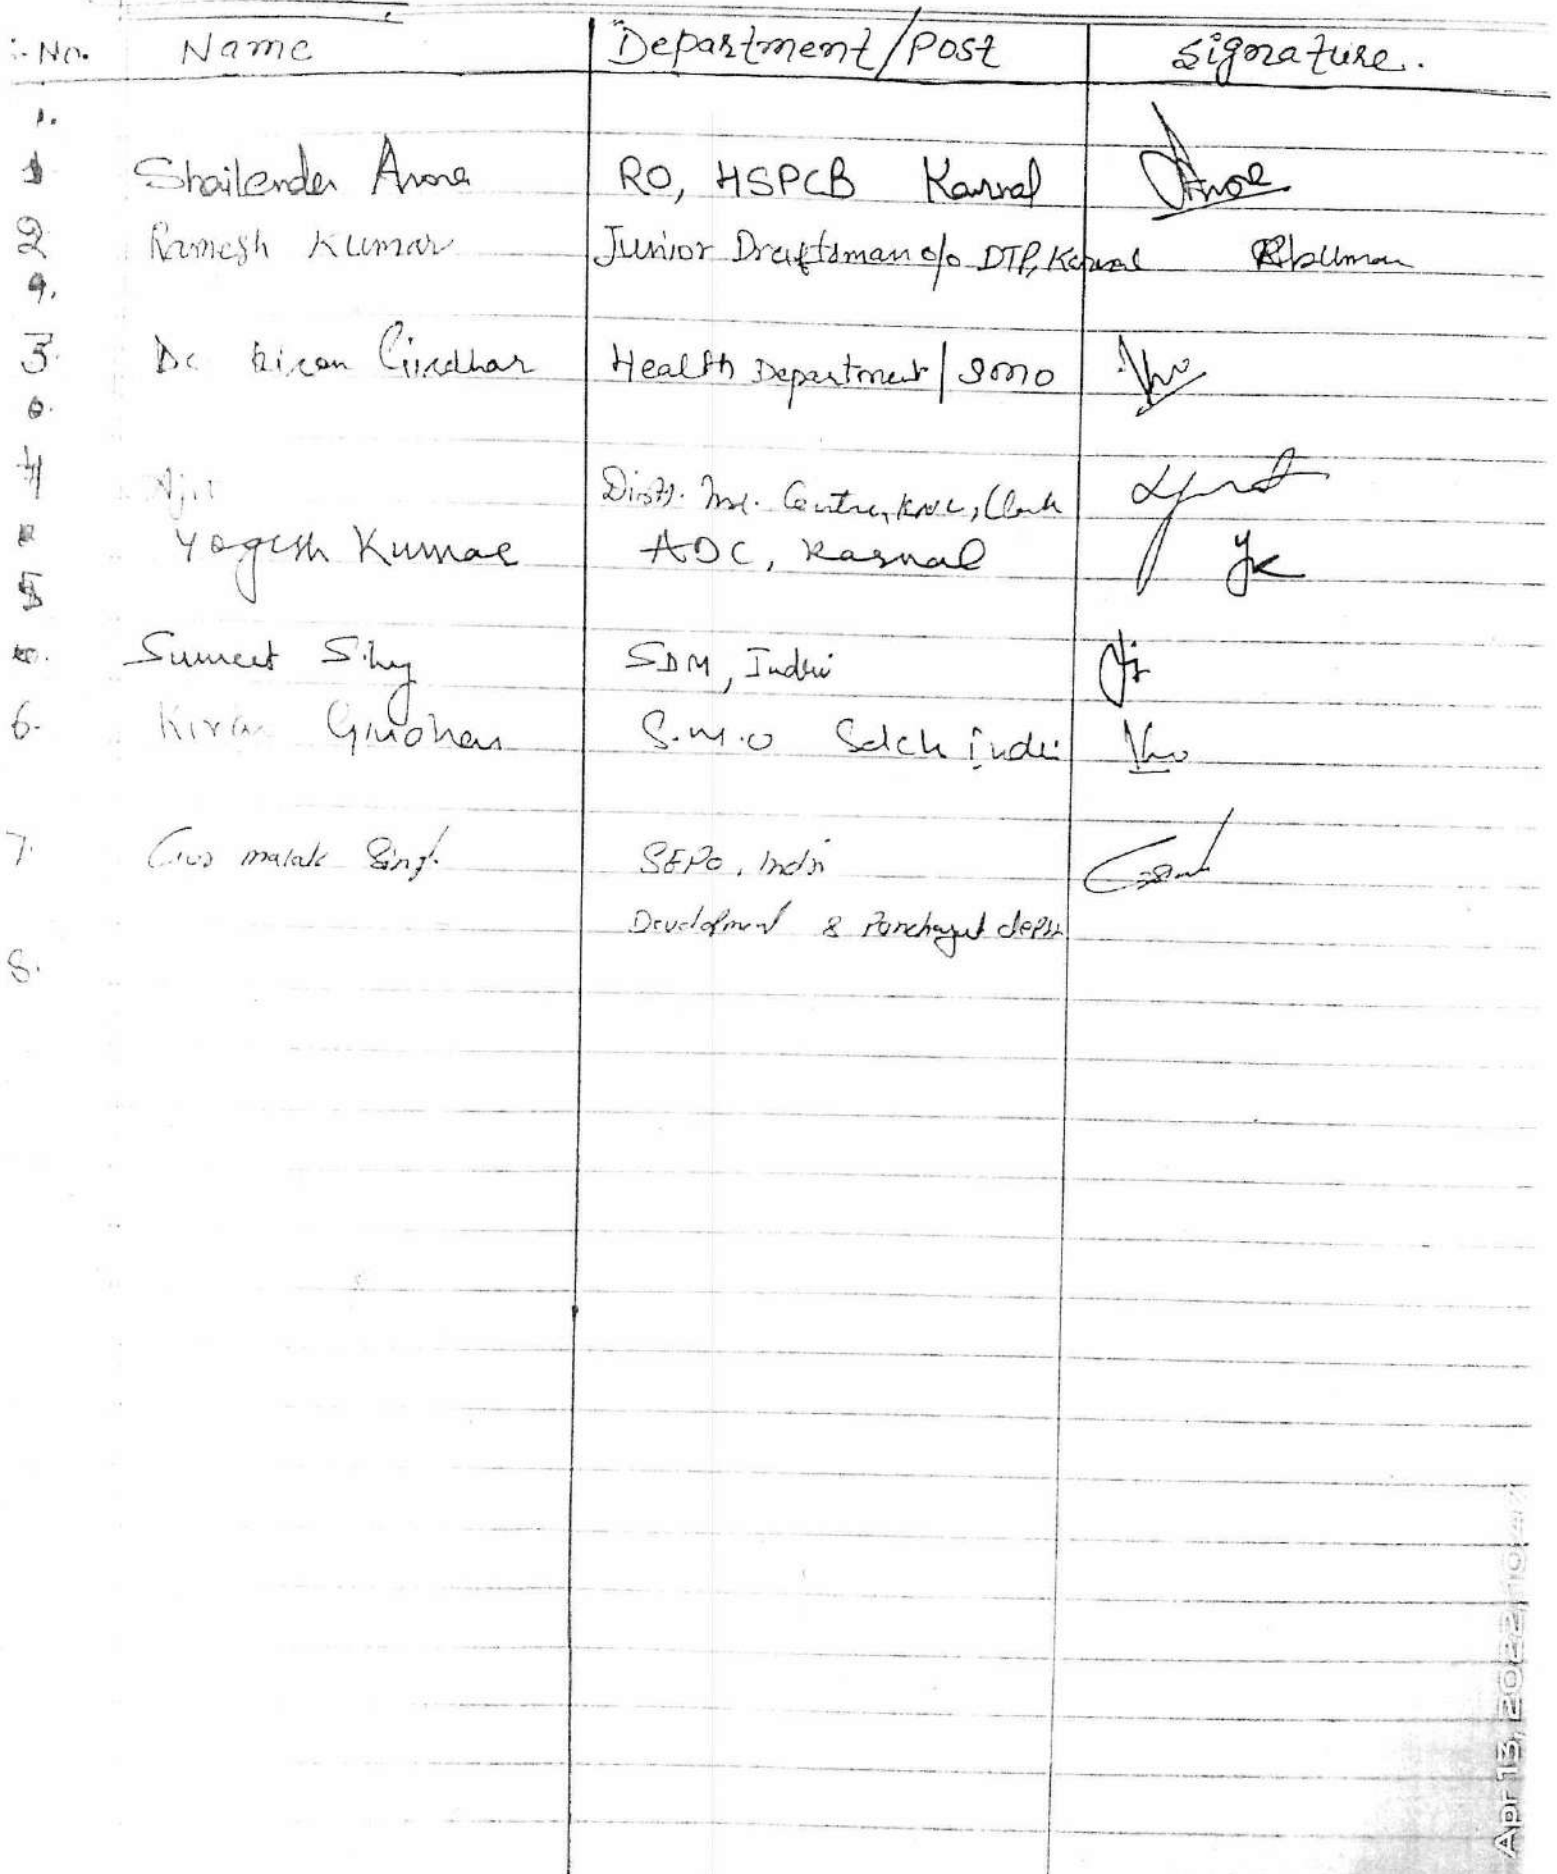 No. Name Department/Post Signature.
1.
1 Shailender Arora RO, HSPCB Karnal Arora
2 Ramesh Kumar Junior Draftsman o/o DTP, Karnal RKumar
4.
3. Dr Kiran Girdhar Health Department/SMO
4 Ajit Distt. Ind. Centre, KNL, Clerk Ajit
Yogesh Kumar ADC, Karnal YK
5
Sumeet Sihag SDM, Indri
6. Kiran Girdhar S.M.O SDCH Indri
7. Gur malak Singh SEPO, Indri
Development & Panchayat deptt
8.
Apr 13, 2022, 10